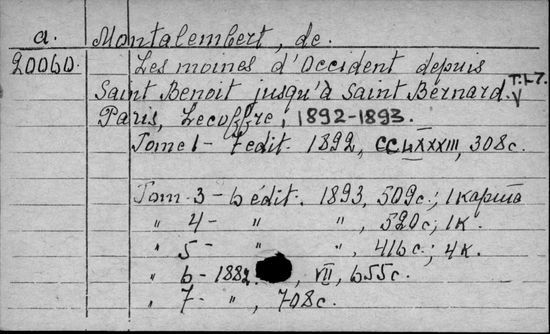 a. Montalembert, de.
20060. Les moines d'Occident depuis
Saint Benoit jusqu'à Saint Bernard. T. 1-7.
V
Paris, Lecoffre, 1892-1893.
Tome 1 - 7 édit. 1892, CCLXXXIII, 308c.
Tom. 3 - 6 édit. 1893, 509c.; 1 карта
" 4 - " ", 520c.; 1к.
" 5 - " ", 416c.; 4к.
" 6 - 1882. , VII, 655c.
" 7 - ", 708c.